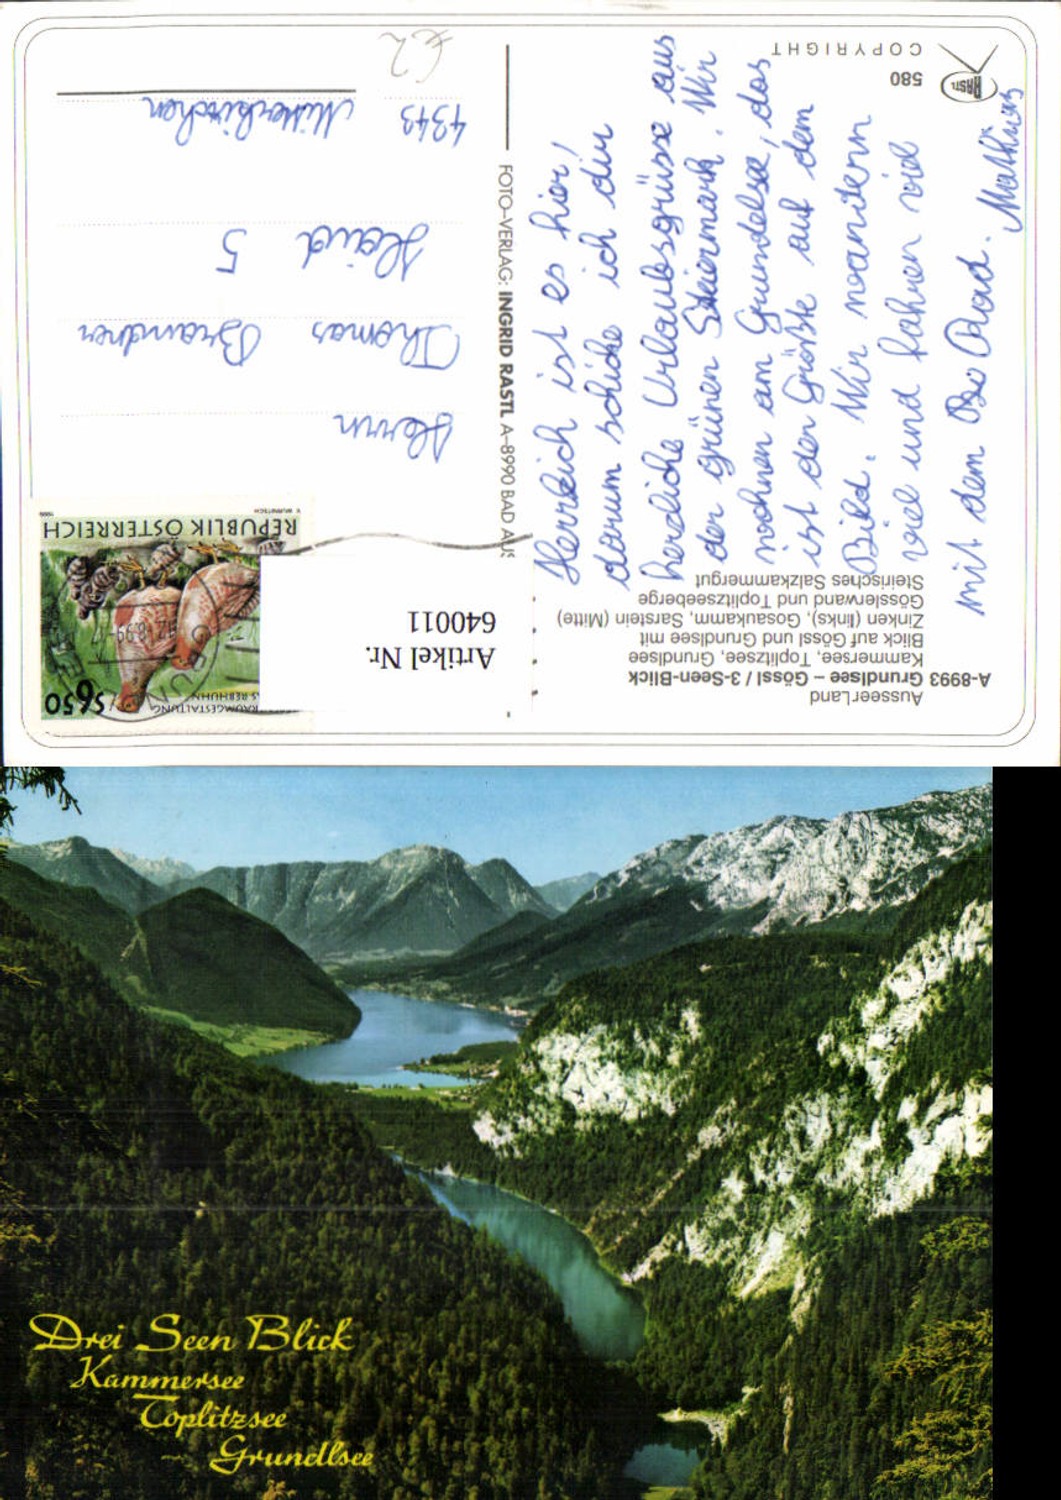 AusseerLand
A-8993 Grundlsee – Gössl / 3-Seen-Blick
Kammersee, Toplitzsee, Grundlsee,
Blick auf Gössl und Grundlsee mit
Zinken (links), Gosaukamm, Sarstein (Mitte)
Gösslerwand und Toplitzseeberge
Steirisches Salzkammergut
Herrlich ist es hier,
darum schicke ich dir
herzliche Urlaubsgrüsse aus
der grünen Steiermark. Wir
wohnen am Grundelsee, das
ist der Größte auf dem
Bild. Wir wandern
viel und fahren viel
mit dem Rad. Mathias
580
RASTL
COPYRIGHT
FOTO–VERLAG: INGRID RASTL A–8990 BAD AUS
Artikel Nr.
640011
S6.50
RAUMGESTALTUNG
S REBHUHN
REPUBLIK ÖSTERREICH
Herrn
Thomas Brandner
Haid 5
4343 Mitterkirchen
€2
Drei Seen Blick
Kammersee
Toplitzsee
Grundlsee